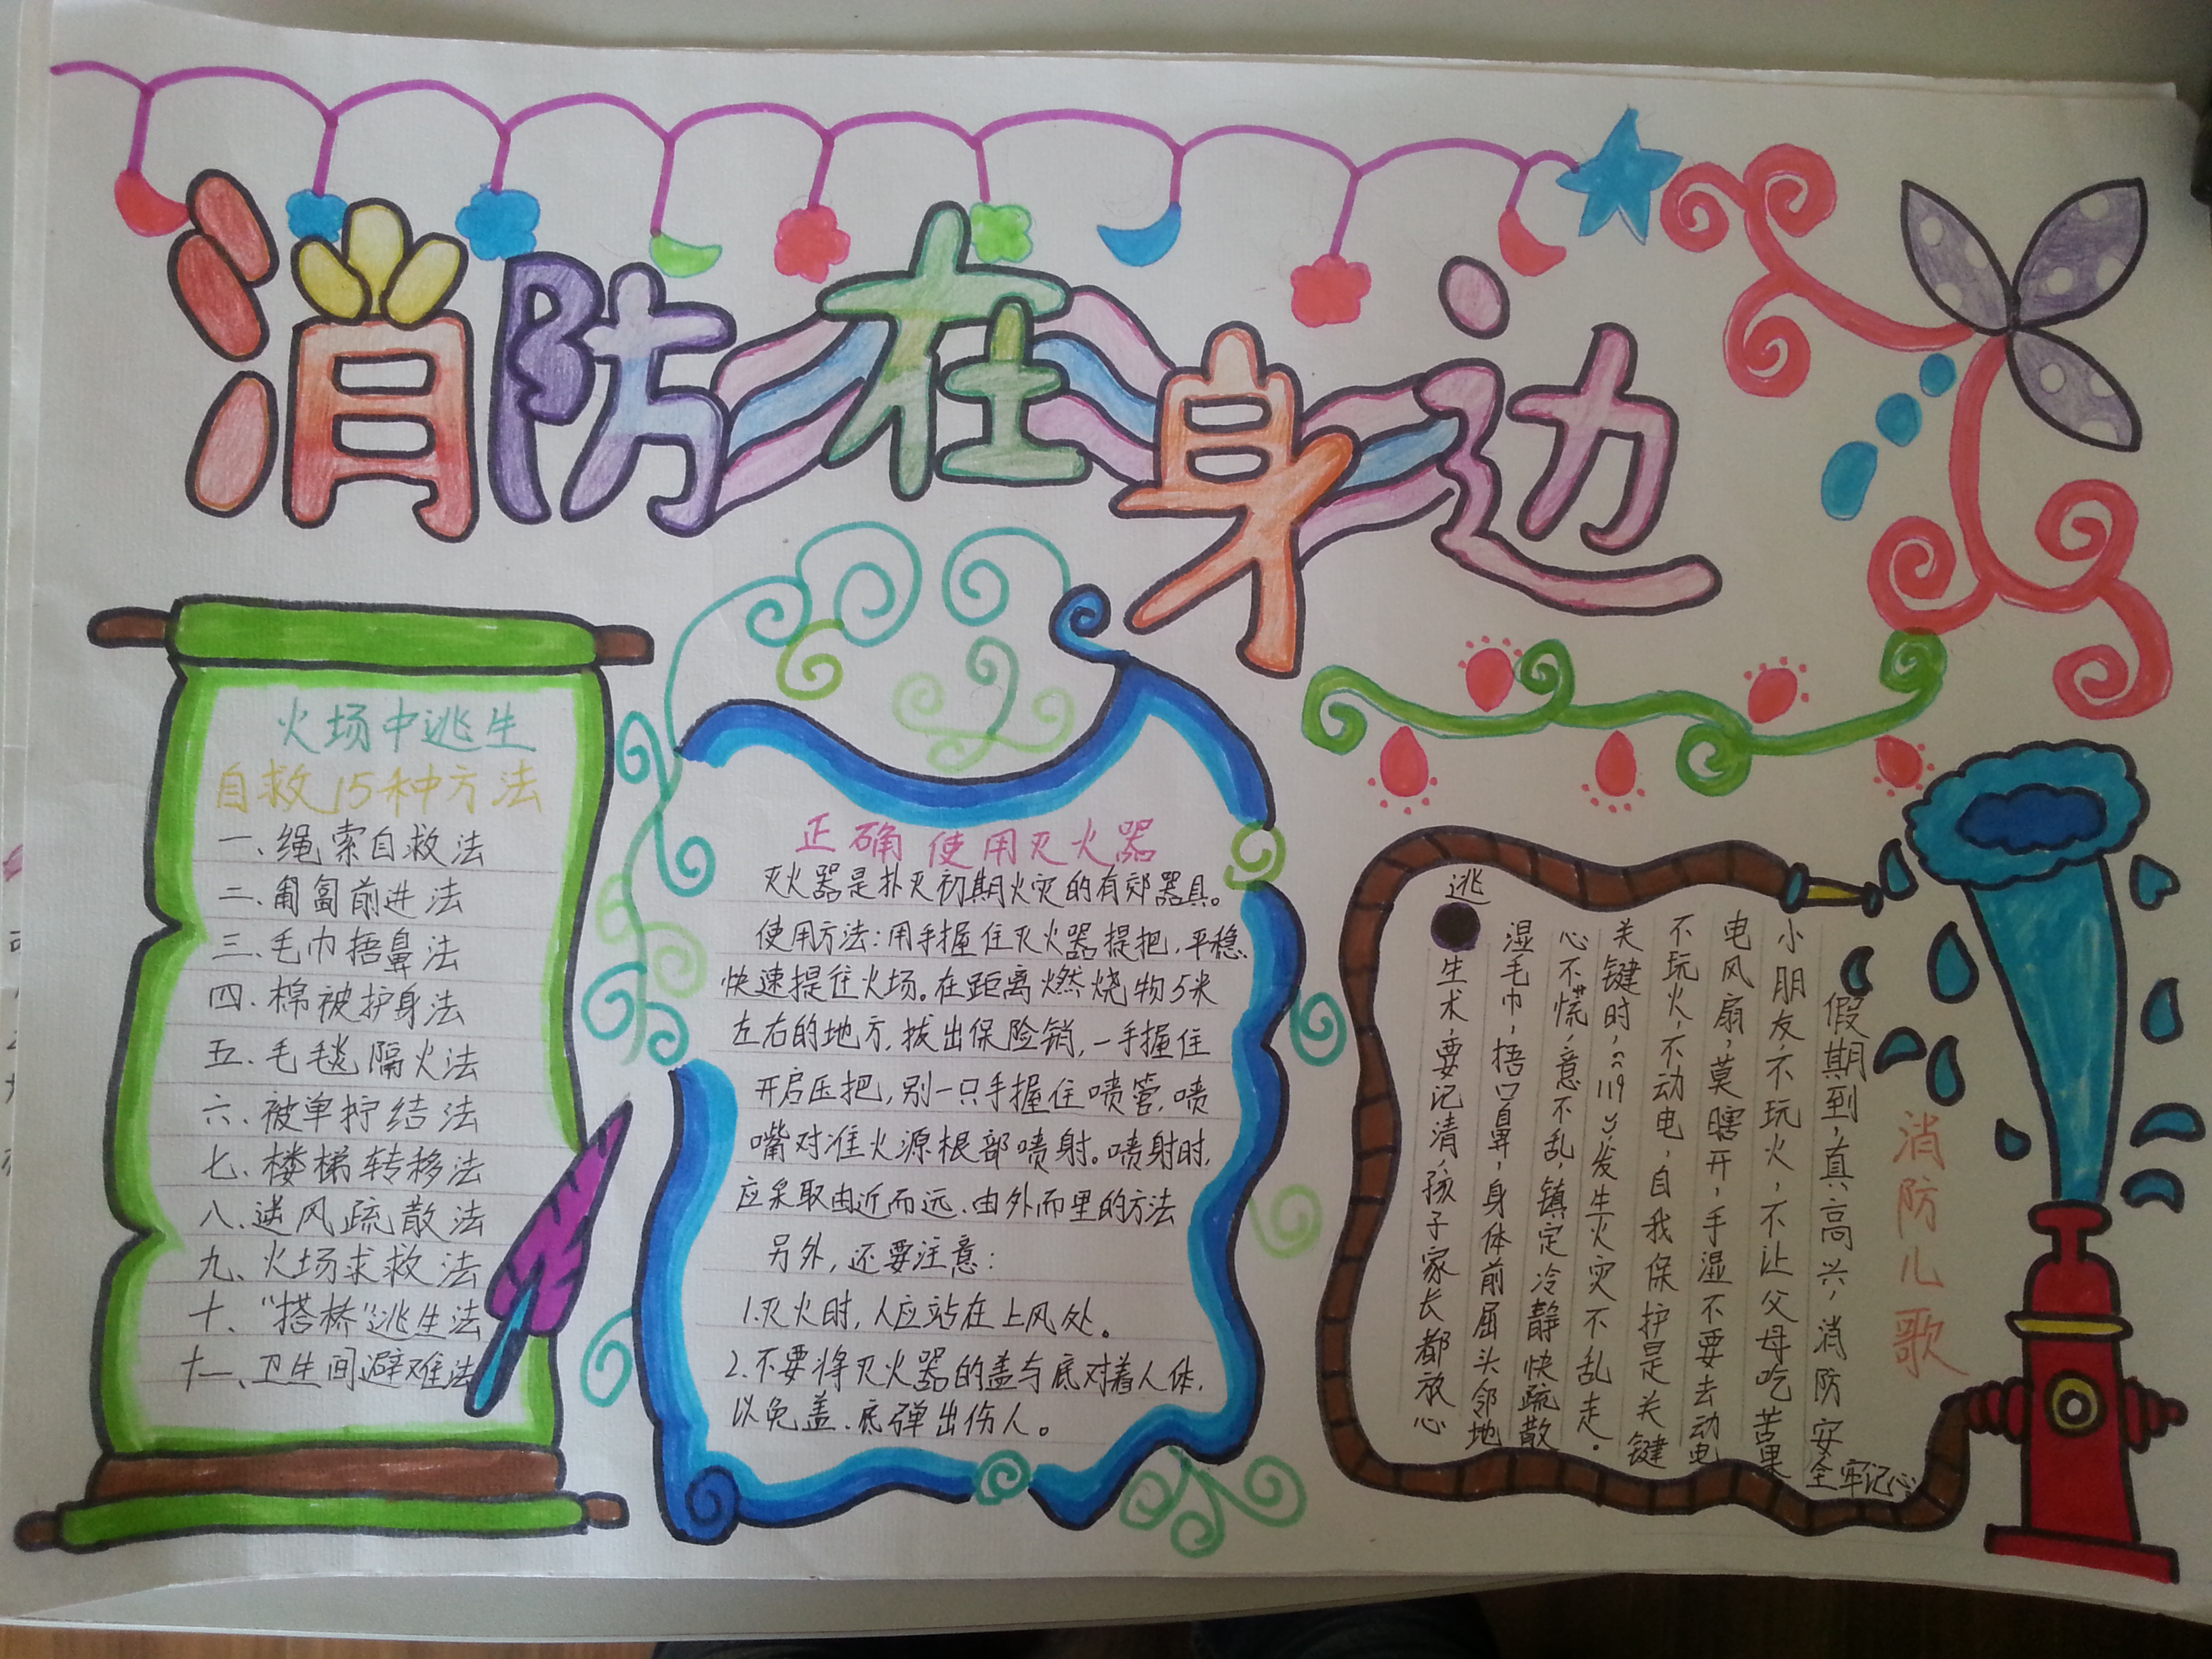 消防在身边
火场中逃生
自救15种方法
一、绳索自救法
二、匍匐前进法
三、毛巾捂鼻法
四、棉被护身法
五、毛毯隔火法
六、被单拧结法
七、楼梯转移法
八、逆风疏散法
九、火场求救法
十、“搭桥”逃生法
十一、卫生间避难法
正确使用灭火器
灭火器是扑灭初期火灾的有效器具。
使用方法：用手握住灭火器提把，平稳、
快速提往火场。在距离燃烧物5米
左右的地方，拔出保险销，一手握住
开启压把，别一只手握住喷管，喷
嘴对准火源根部喷射。喷射时，
应采取由近而远、由外而里的方法
另外，还要注意：
1.灭火时，人应站在上风处。
2.不要将灭火器的盖与底对着人体，
以免盖、底弹出伤人。
消防儿歌
假期到，真高兴，消防安全牢记心
小朋友不玩火，不让父母吃苦果
电风扇，莫瞎开，手湿不要去动电
不玩火，不动电，自我保护是关键
关键时，“119”，发生火灾不乱走。
心不慌，意不乱，镇定冷静快疏散
湿毛巾，捂口鼻，身体前屈头邻地
逃生术，要记清，孩子家长都放心